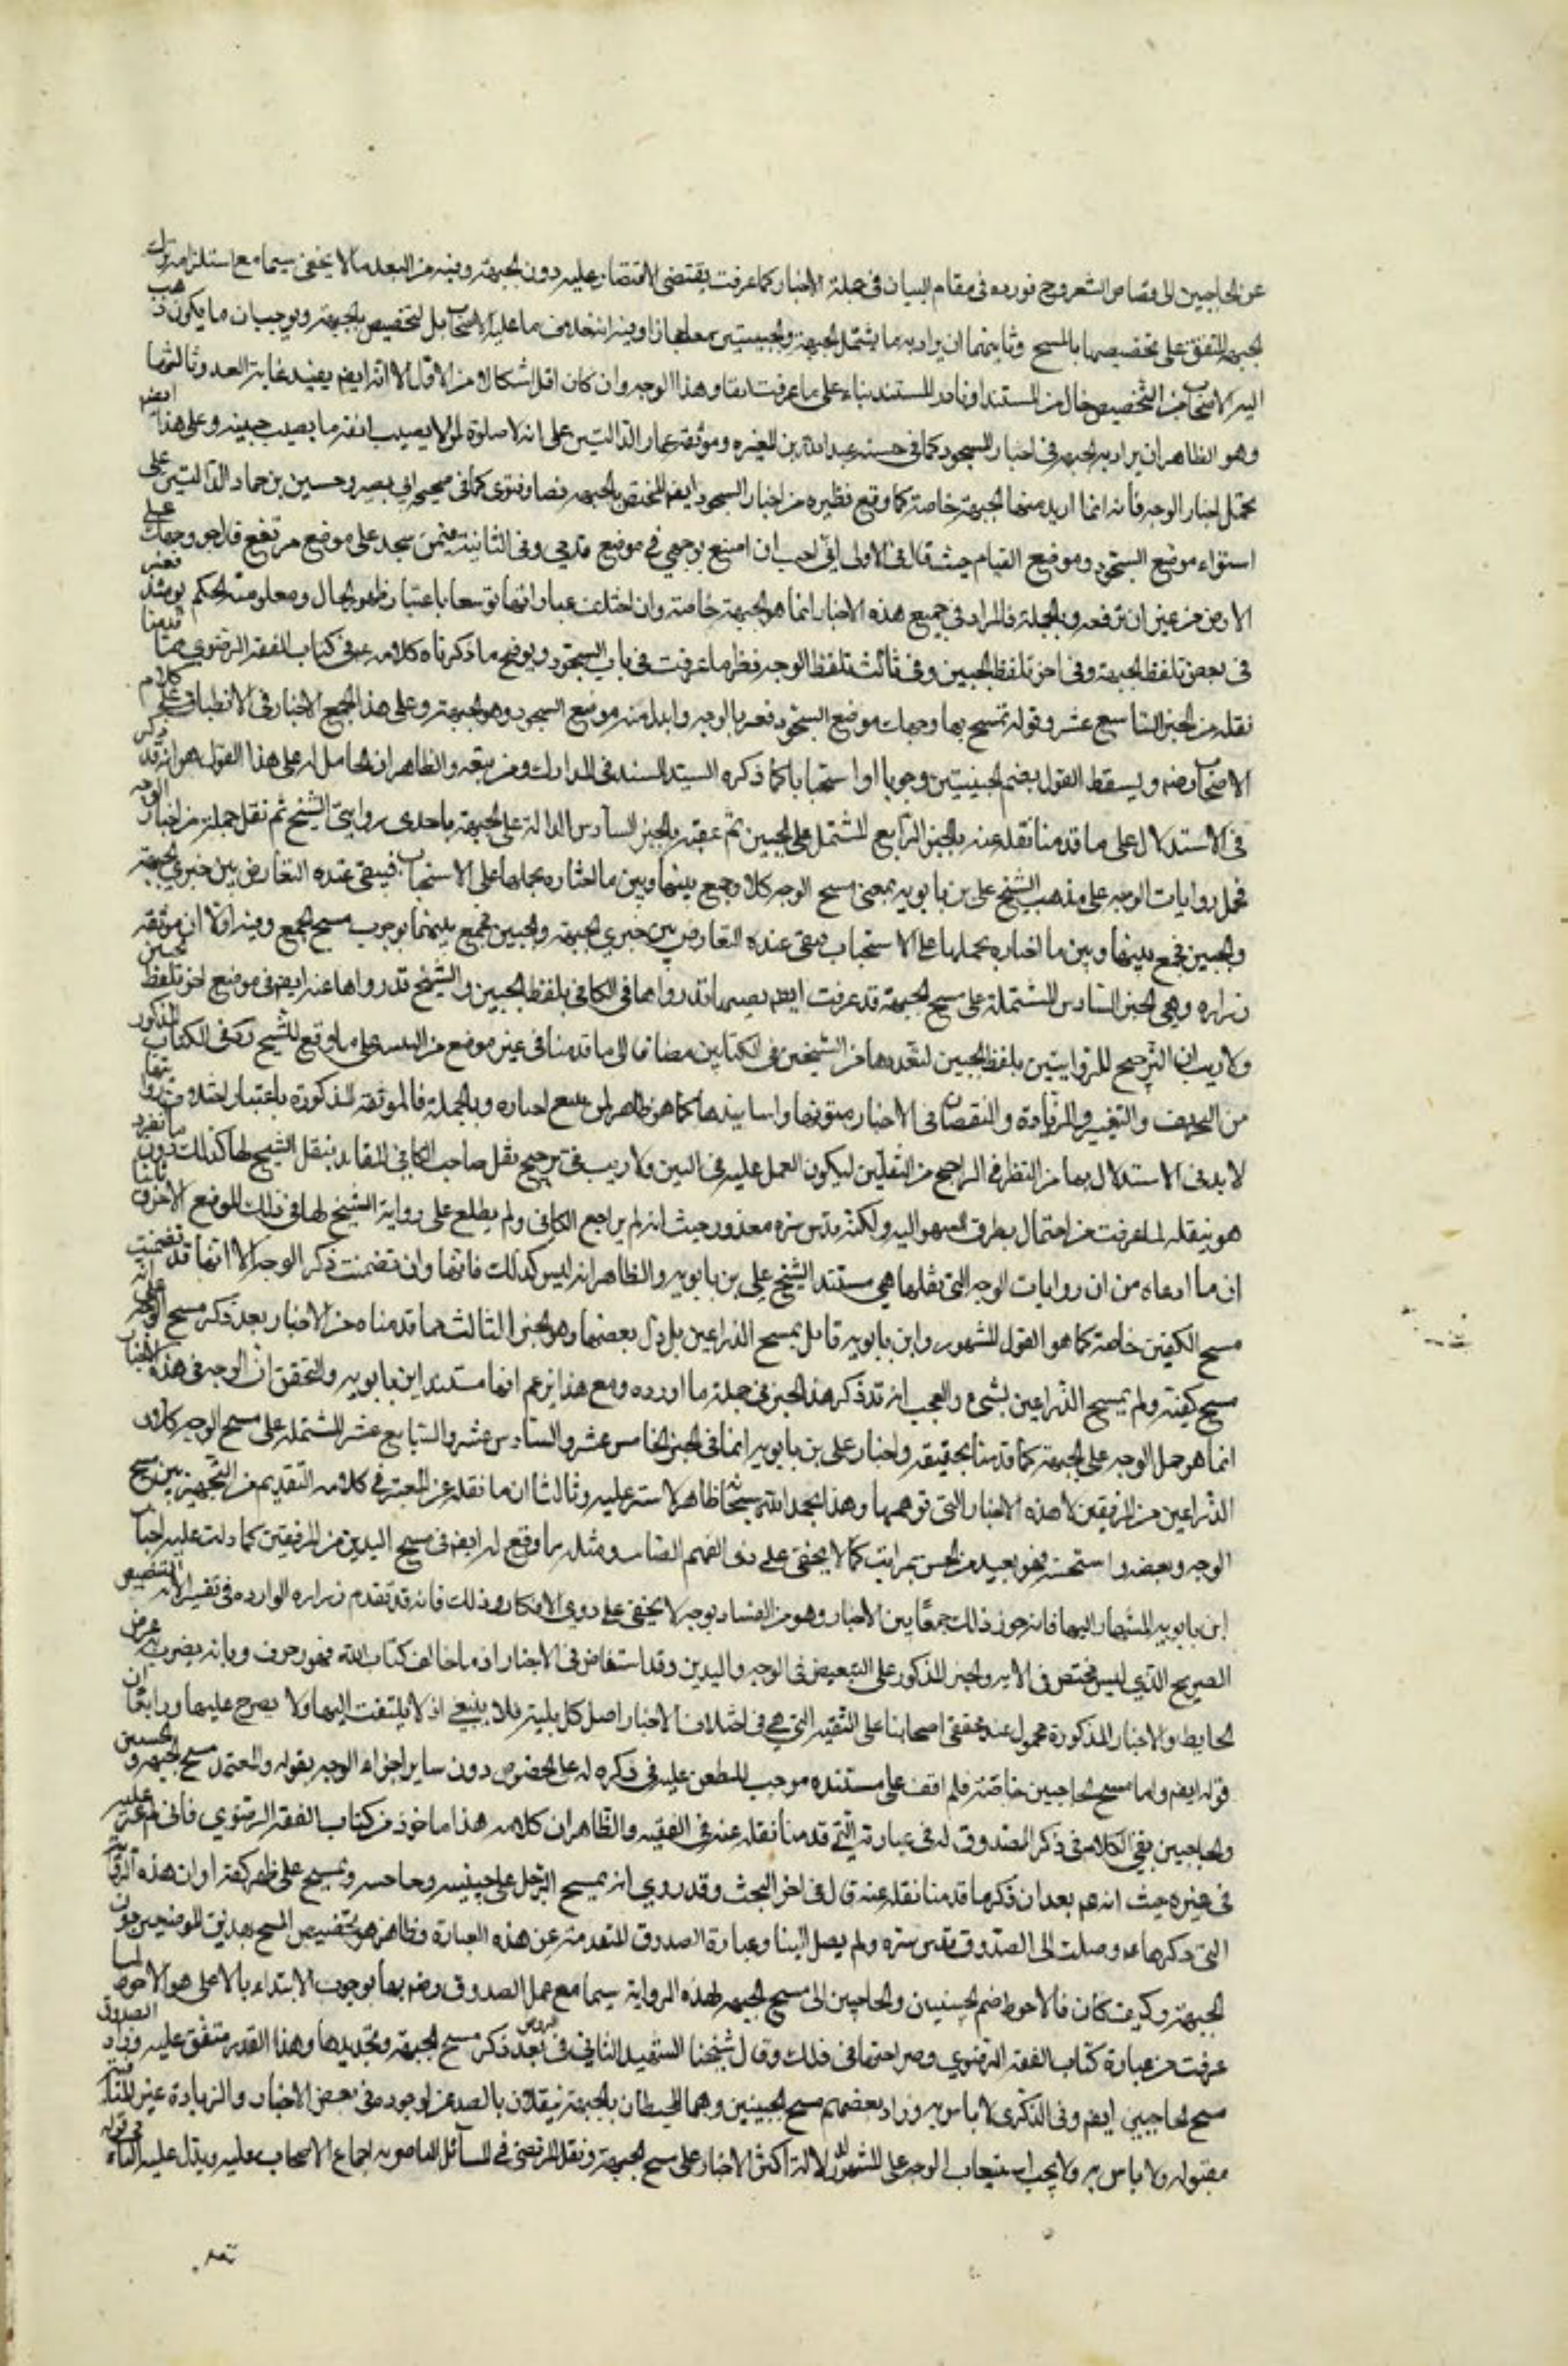 عن الحاجبين الى قصاص الشعر وح فوروده في مقام البيان في جملة الاخبار كما عرفت يقتضي الاقتصار عليه دون الجبهة وفيه من البعد ما لا يخفى سيما مع استلزامه ترك
الجبهة المتفق على تخصيصها بالمسح وثانيهما ان يراد به ما يشتمل الجبهة والجبينين معا مجازا وفيه انه خلاف ما عليه الاصحاب بل التخصيص بالجبهة ويوجب ان ما يكون ذهب
اليه الاصحاب من التخصيص خال من المستند او نادر المستند بناء على ما عرفت انفا وهذا الوجه وان كان اقل اشكالا من الاول الا انه ايضم يفيد غاية البعد وثالثهما
وهو الظاهر ان يراد به الجبهة في اخبار السجود كما في حسنة عبد الله بن المغيره وموثقة عمار الدالتين على انه لا صلوة لمن لا يصيب انفه ما يصيب جبينه وعلى هذا ايضم
تحمل اخبار الوجه فانه انما اريد منها الجبهة خاصة كما وقع نظيره من اخبار السجود ايضم المختص بالجبهة نصا وفتوى كما في صحيحة ابي بصير وحسين بن حماد الدالتين على
استواء موضع السجود وموضع القيام حيث قال في الاولى اني احب ان اضع وجهي في موضع قدمي وفي الثانية فيمن سجد على موضع مرتفع قال جر وجهك على
الارض من غير ان ترفعه وبالجملة فالمراد في جميع هذه الاخبار انما هو الجبهة خاصة وان اختلفت عباراتها توسعا باعتبار ظهور الحال ومعلومية الحكم يومئذ فعبر
في بعض بلفظ الجبهة وفي اخر بلفظ الجبين وفي ثالث بلفظ الوجه نظر ما عرفت في باب السجود ويوضح ما ذكرناه كلامه ع في كتاب الفقه الرضوي مما قدمنا
نقله من الخبر التاسع عشر وقوله تمسح بها وجهك موضع السجود فعبر بالوجه وابدل منه موضع السجود وهو الجبهة وعلى هذا تجتمع الاخبار في الانطباق على كلام
الاصحاب رضم ويسقط القول بضم الجبينين وجوبا او استحبابا كما ذكره السيد السند في المدارك ومن تبعه والظاهر ان الحامل له على هذا القول هو انه قد ذكر
في الاستدلال على ما قدمنا نقله عنه بالخبر الرابع المشتمل على الجبين ثم عقبه بالخبر السادس الدالة على الجبهة باحدى روايتي الشيخ ثم نقل جملة من اخبار الوجه
فحمل روايات الوجه على مذهب الشيخ علي بن بابويه بمعنى مسح الوجه كلا وجمع بينها وبين ما اختاره بحملها على الاستحباب فيبقى عنده التعارض بين خبري الجبهة
والجبين فجمع بينها وبين ما اختاره بحملها على الاستحباب فيبقى عنده التعارض بين خبري الجبهة والجبين فجمع بينهما بوجوب مسح الجميع وفيه اولا ان موثقة
زراره وهي الخبر السادس المشتملة على مسح الجبهة قد عرفت ايضم قد رواها في الكافي بلفظ الجبين والشيخ قد رواها عنه ايضم في موضع اخر بلفظ الجبين
ولا ريب ان الترجيح للروايتين بلفظ الجبين لتعددها من الشيخين في الكتابين مضافا الى ما قدمنا في غير موضع من التنبيه على ما وقع للشيخ ره في الكتاب المذكور
من التحريف والتغيير والزيادة والنقصان في الاخبار متونها واسانيدها كما هو ظاهر لمن تتبع اخباره وبالجملة فالموثقة المذكورة باعتبار اختلاف رواتها
لا بد في الاستدلال بها من النظر في الراجح من النقلين ليكون العمل عليه في البين ولا ريب في ترجيح نقل صاحب الكافي المتايد بنقل الشيخ لها كذلك دون ما تفرد
هو بنقله لما عرفت من احتمال تطرق السهو اليه ولكنه قدس سره معذور حيث انه لم يراجع الكافي ولم يطلع على رواية الشيخ لها في ذلك الموضع الاخر وثانيا
ان ما ادعاه من ان روايات الوجه التي نقلها هي مستند الشيخ علي بن بابويه والظاهر انه ليس كذلك فانها وان تضمنت ذكر الوجه الا انها قد تضمنت
مسح الكفين خاصة كما هو القول المشهور وابن بابويه قايل بمسح الذراعين بل دل بعضها وهو الخبر الثالث مما قدمناه من الاخبار بعد ذكر مسح الوجه على انه
مسح كفيه ولم يمسح الذراعين بشيء والعجب انه قد ذكر هذا الخبر في جملة ما اورده ومع هذا يزعم انها مستند ابن بابويه والتحقق ان الوجه في هذه الاخبار
انما هو حمل الوجه على الجبهة كما قدمنا تحقيقه واخبار علي بن بابويه انما في الخبر الخامس عشر والسادس عشر والسابع عشر المشتملة على مسح الوجه كلا و
الذراعين من المرفقين لا هذه الاخبار التي توهمها وهذا بحمد الله سبحانه ظاهر لا ستر عليه وثالثا ان ما نقله عن المعتبر في كلامه المتقدم من التخيير بين مسح
الوجه وبعضه واستحسنه فهو بعيد من الحسن بمراتب كما لا يخفى على ذوي الفهم الصايب ومثله ما وقع له ايضم في مسح اليدين من المرفقين كما دلت عليه اخبار
ابن بابويه المشار اليها فانه جوز ذلك جمعا بين الاخبار وهو من الفساد بوجه لا يخفى على ذوي الافكار وذلك فانه قد تقدم زراره الوارده في تفسير الاية التنصيص
الصريح الذي ليس مختص في الاية والخبر المذكور على التبعيض في الوجه واليدين وقد استفاض في الاخبار ان ما خالف كتاب الله فهو زخرف وربما انه يضرب به عرض
الحايط والاخبار المذكورة محمول عند محققي اصحابنا على التقيه التي هي في اختلاف الاخبار اصل كل بلية فلا ينبغي اذ لا يلتفت اليها ولا يعرج عليها ورابعا ان
قوله ايضم واما مسح الحاجبين خاصة فلم اقف على مستنده موجب للطعن عليه في ذكره له على الخصوص دون ساير اجزاء الوجه بقوله والمعتمد مسح الجبهة والجبينين
والحاجبين بقي الكلام في ذكر الصدوق له في عبارته التي قدمنا نقله عنه في الفقيه والظاهر ان كلامه هذا ماخوذ من كتاب الفقه الرضوي فاني لم اعثر عليه
في غيره حيث انه ع بعد ان ذكر ما قدمنا نقله عنه قال في اخر البحث وقد روي انه يمسح الرجل على جبينيه وحاجبيه ويمسح على ظهر كفيه او ان هذه الرواية
التي ذكرها ع وصلت الى الصدوق قدس سره ولم يصل الينا وعبارة الصدوق المتقدمة عن هذه العبارة وظاهره هو تخصيص المسح بهذين الموضعين دون
الجبهة وكيف كان فالاحوط ضم الجبينين والحاجبين الى مسح الجبهة لهذه الرواية سيما مع عمل الصدوق رضم بها بوجوب الابتداء بالاعلى هو الاحوط لما
عرفت من عبارة كتاب الفقه الرضوي وصراحتها في ذلك وقال شيخنا الشهيد الثاني في الروض بعد ذكر مسح الجبهة وتحديدها وهذا القدر متفق عليه وزاد الصدوق
مسح الحاجبين ايضم وفي الذكرى لا باس به وزاد بعضهم مسح الجبينين وهما المحيطان بالجبهة يتصلان بالصدغين لوجوده في بعض الاخبار والزيادة غير المنافية
مقبولة ولا باس به ولا يجب استيعاب الوجه على المشهور لدلالة اكثر الاخبار على مسح الجبهة ونقل المرتضى في المسائل الناصرية اجماع الاصحاب عليه ويدل عليه الباء في قوله